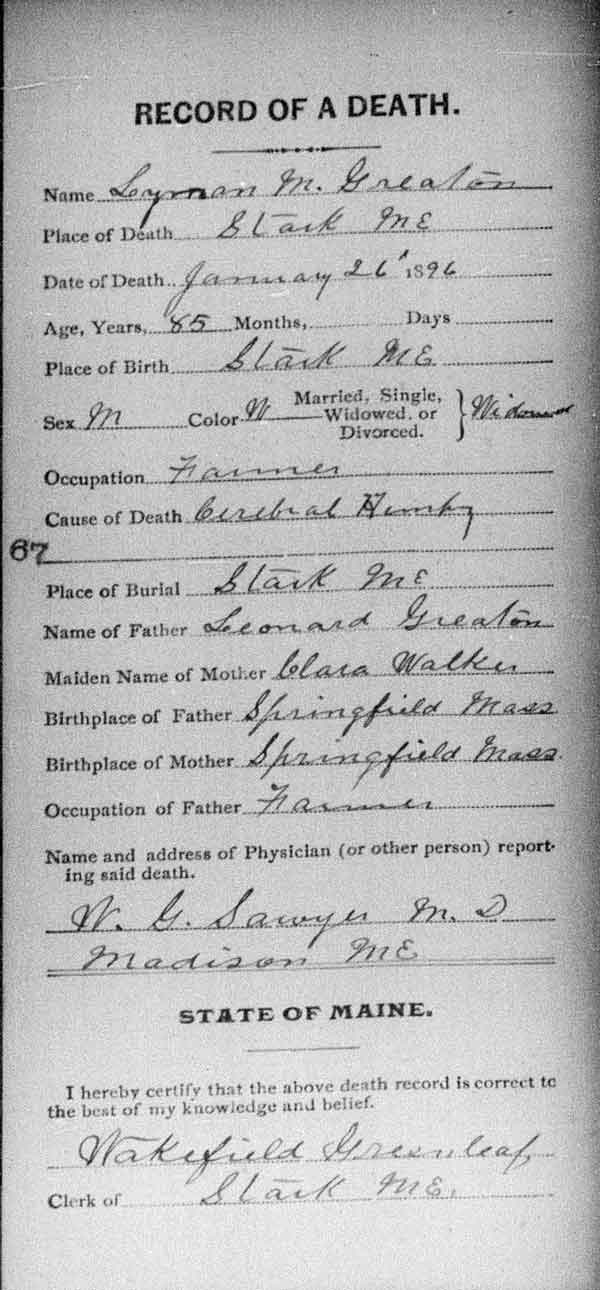 RECORD OF A DEATH.
Name Lyman M. Greaton
Place of Death Stark ME
Date of Death January 26 1896
Age, Years, 85 Months, Days
Place of Birth Stark ME
Sex M Color W Married, Single, Widowed, or Divorced. } Widowed
Occupation Farmer
Cause of Death Cerebral
67
Place of Burial Stark ME
Name of Father Leonard Greaton
Maiden Name of Mother Clara Walker
Birthplace of Father Springfield Mass
Birthplace of Mother Springfield Mass
Occupation of Father Farmer
Name and address of Physician (or other person) report-
ing said death.
W. G. Sawyer M. D
Madison ME
STATE OF MAINE.
I hereby certify that the above death record is correct to
the best of my knowledge and belief.
Wakefield Greenleaf,
Clerk of Stark ME.